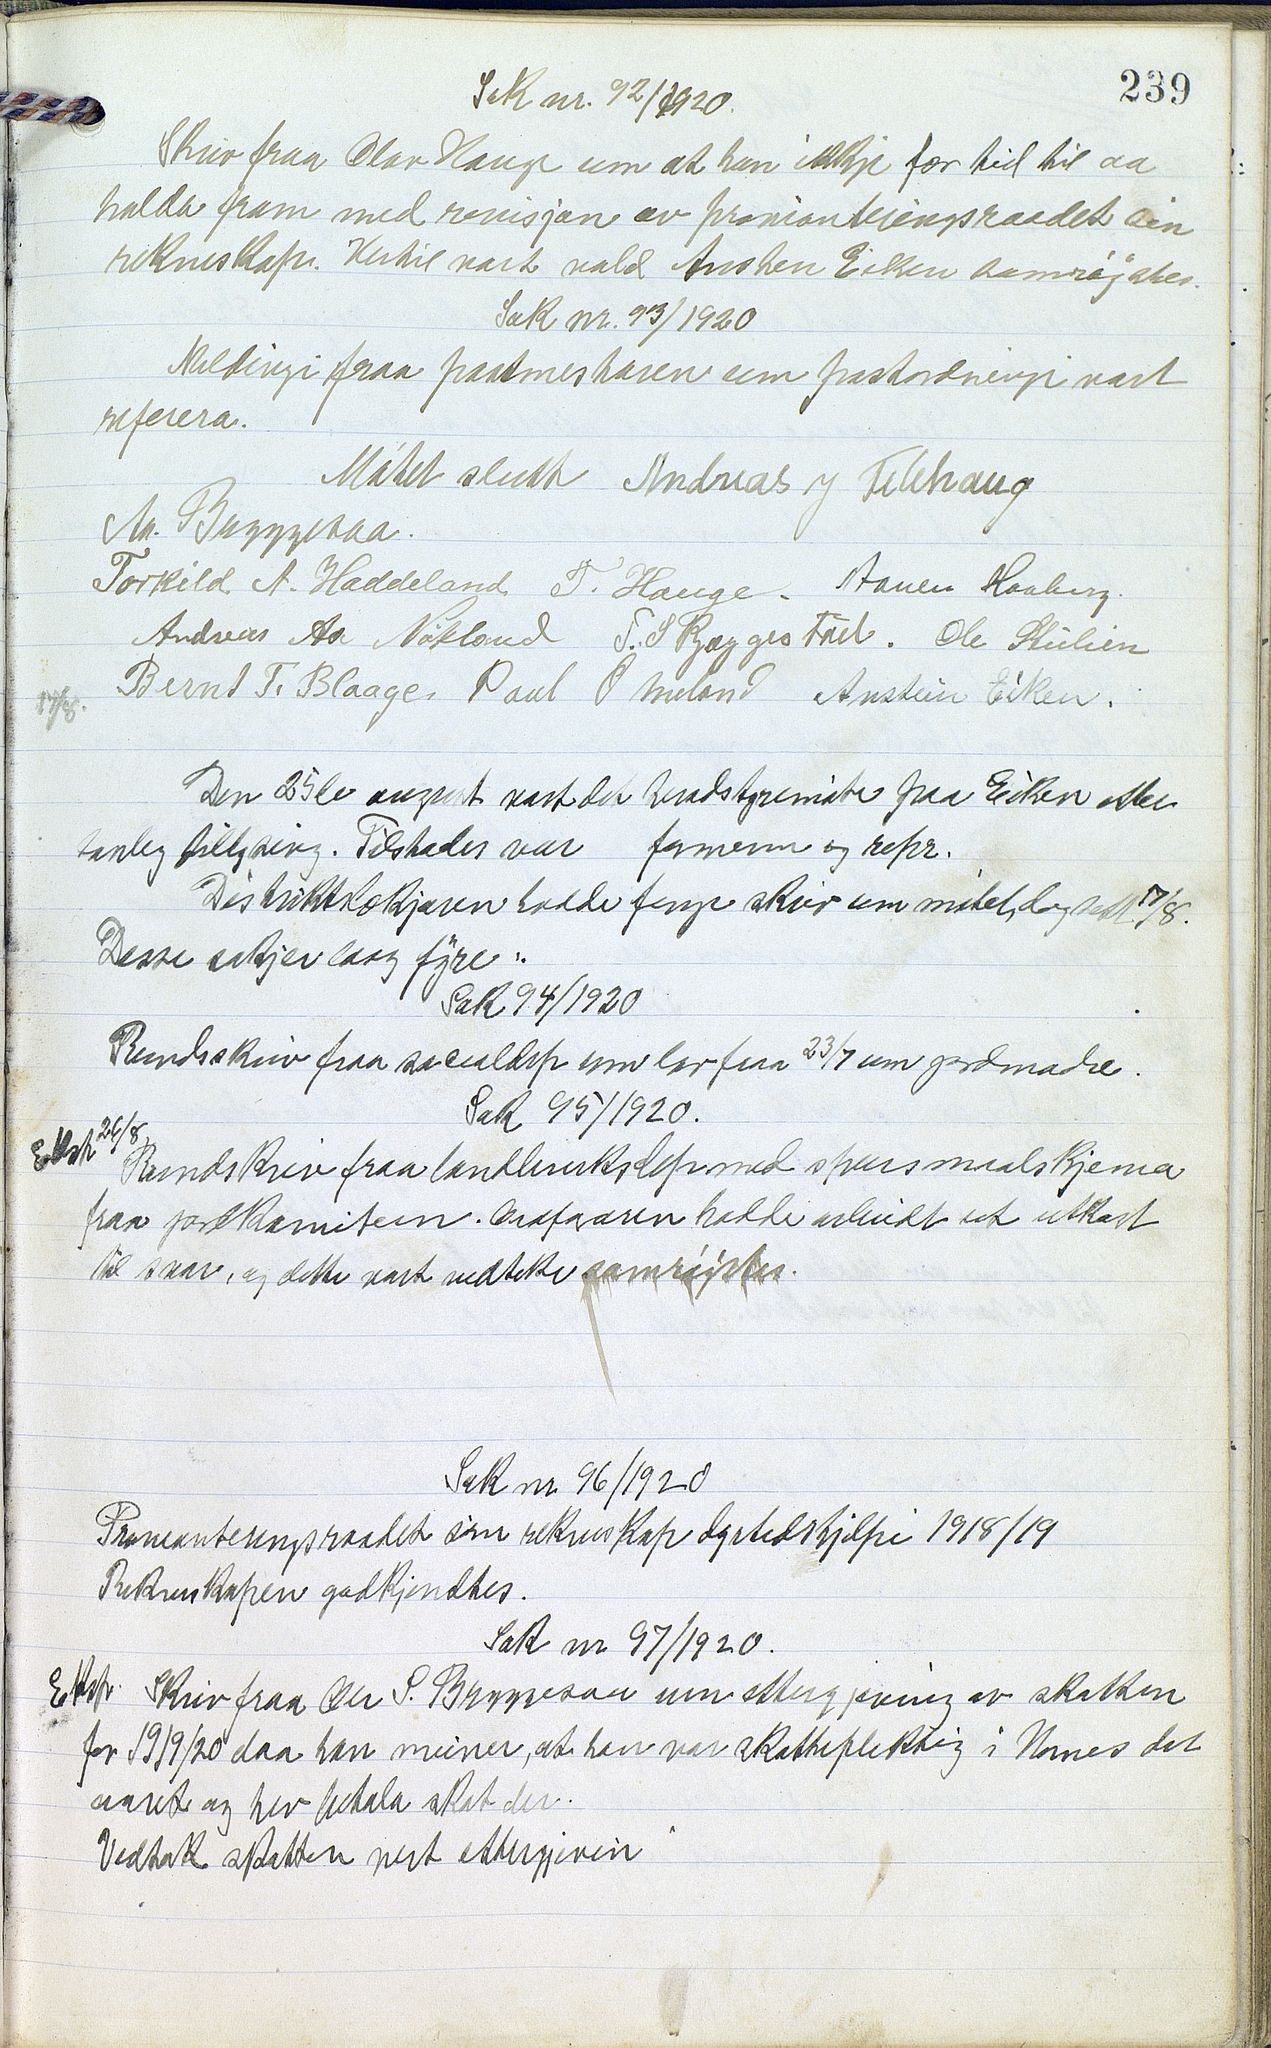 239
Sak nr. 92/1920.
Skriv fraa Olav Hauge um at han ikkje fær tid til aa
halda fram med revisjon av provianteringsraadet sin
rekneskap. Hertil vart vald Anstein Eiken samrøystes.
Sak nr. 93/1920
Meldingi fraa postmesteren um postordningi vart
referera.
Møtet slutt Andreas J Telhaug
An. Bryggesaa.
Torkild A. Haddeland T. Hauge. Aanen Homberg.
Andreas Aa Nökland T. Skeggestad. Ole Stulien
17/8. Bernt T. Blaage. Paul O Omland Anstein Eiken.
Den 25de august vart det heradstyremöte paa Eiken etter
lovleg tillysing. Tilstades var formenn og repr.
Distriktslækjaren hadde fenge skriv um mötet, dagsett 17/8.
Desse sakjer laag fyre:
Sak 94/1920
Rundskriv fraa socialdep um lov fraa 23/7 um jordmødre.
Sak 95/1920.
Eksp 26/8
Rundskriv fraa landbruksdep med spursmaalskjema
fraa jordkomiteen. Ordføraren hadde arbeidt ut utkast
til svar, og dette vart vedteke samrøystes.
Sak nr 96/1920
Provianteringsraadet sin rekneskap dyrtidshjelpi 1918/19
Rekneskapen godkjendtes.
Sak nr 97/1920.
Eksp. Skriv fraa Ole S. Bryggesaa um ettergjeving av skatten
for 1919/20 daa han meiner, at han var skattepliktig i Homes det
aaret og hev betala skat der.
Vedtak skatten vert ettergjeven